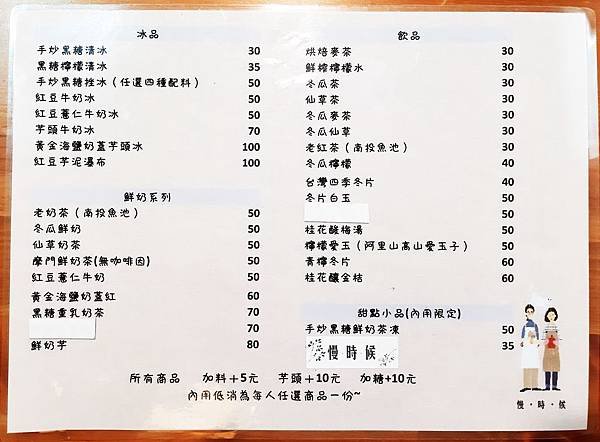 冰品
手炒黑糖清冰 30
黑糖檸檬清冰 35
手炒黑糖挫冰(任選四種配料) 50
紅豆牛奶冰 50
紅豆薏仁牛奶冰 50
芋頭牛奶冰 70
黃金海鹽奶蓋芋頭冰 100
紅豆芋泥瀑布 100
鮮奶系列
老奶茶(南投魚池) 50
冬瓜鮮奶 50
仙草奶茶 50
摩門鮮奶茶(無咖啡因) 50
紅豆薏仁牛奶 50
黃金海鹽奶蓋紅 60
黑糖重乳奶茶 70
70
鮮奶芋 80
飲品
烘焙麥茶 30
鮮榨檸檬水 30
冬瓜茶 30
仙草茶 30
冬瓜麥茶 30
冬瓜仙草 30
老紅茶(南投魚池) 30
冬瓜檸檬 40
台灣四季冬片 40
冬片白玉 50
50
桂花酸梅湯 50
檸檬愛玉(阿里山高山愛玉子) 50
青檸冬片 60
桂花釀金桔 60
甜點小品(內用限定)
手炒黑糖鮮奶茶凍 50
慢時候 35
所有商品 加料+5元 芋頭+10元 加糖+10元
內用低消為每人任選商品一份~
慢·時·候